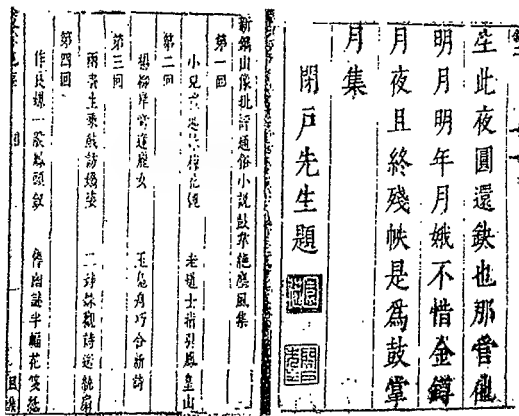 坐此夜圓還缺也那管他
明月明年月娥不惜金鐏
月夜且終殘帙是為鼓掌
月集
閉戶先生題
新鐫出像批評通俗小說鼓掌絕塵風集
第一回
小兒 花
老道士指引鳳皇山
第二回
楊柳岸 逢麗女
玉鳧舟巧合新詩
第三回
兩書生乘戲訪嬌姿
二姊妹觀詩送紈扇
第四回
作良媒一股鳳頭釵
傳幽謎半幅花箋紙